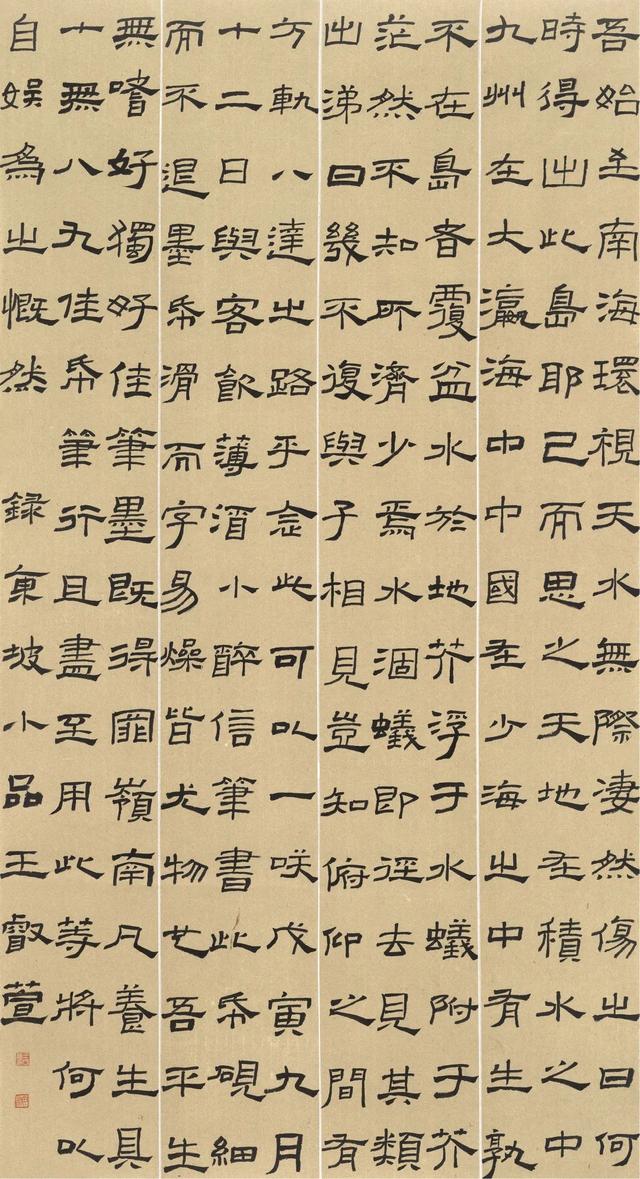 吾始至南海環視天水無際淒然傷之曰何
時得出此島耶已而思之天地在積水之中
九州在大瀛海中中國在少海之中有生孰
不在島者覆盆水於地芥浮于水蟻附于芥
茫然不知所濟少焉水涸蟻即徑去見其類
出涕曰幾不復與子相見豈知俯仰之間有
方軌八達之路乎念此可以一咲戊寅九月
十二日與客飲薄酒小醉信筆書此帋硯細
而不退墨帋滑而字易燥皆尤物也吾平生
無嗜好獨好佳筆墨既得罪嶺南凡養生具
十無八九佳帋筆行且盡至用此等將何以
自娛為之慨然 錄東坡小品王叡萱